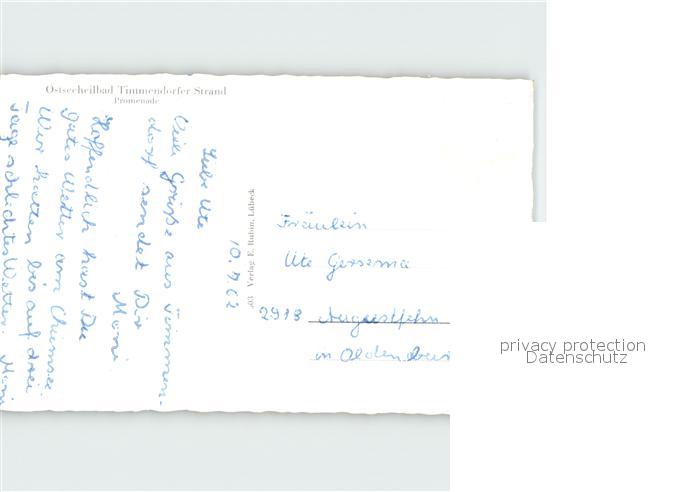 Ostseeheilbad Timmendorfer Strand
Promenade
10. 9. 62
Liebe Ute
Viele Grüße aus Timmen-
dorf sendet Dir
Moni
Hoffendlich hast Du
Gutes Wetter am Chiemsee.
Wir hatten bis auf drei
Tage schlichtes Wetter. Moni
03 Verlag E. Rubin, Lübeck
Fräulein
Ute Gersema
2913 Augustfehn
in Oldenburg
privacy protection
Datenschutz